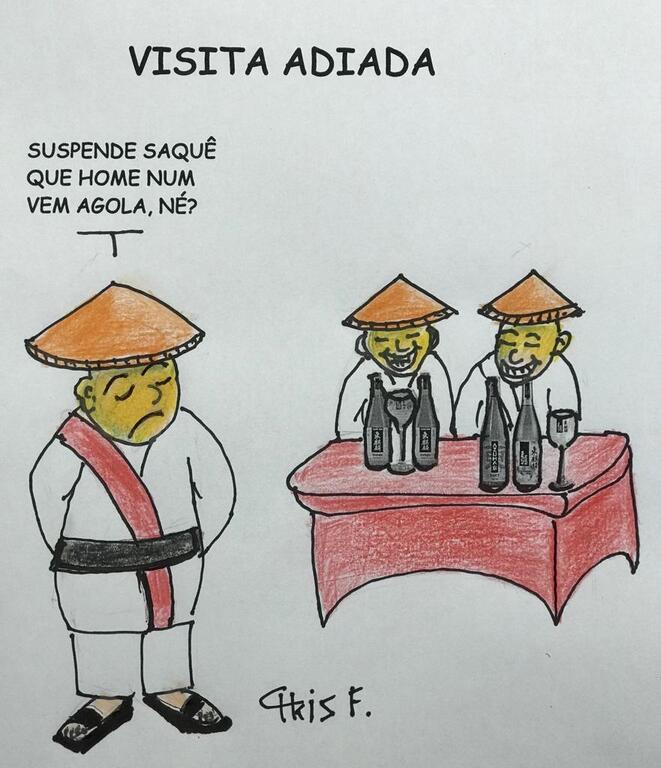 VISITA ADIADA
SUSPENDE SAQUÊ
QUE HOME NUM
VEM AGOLA, NÉ?
Ckis F.